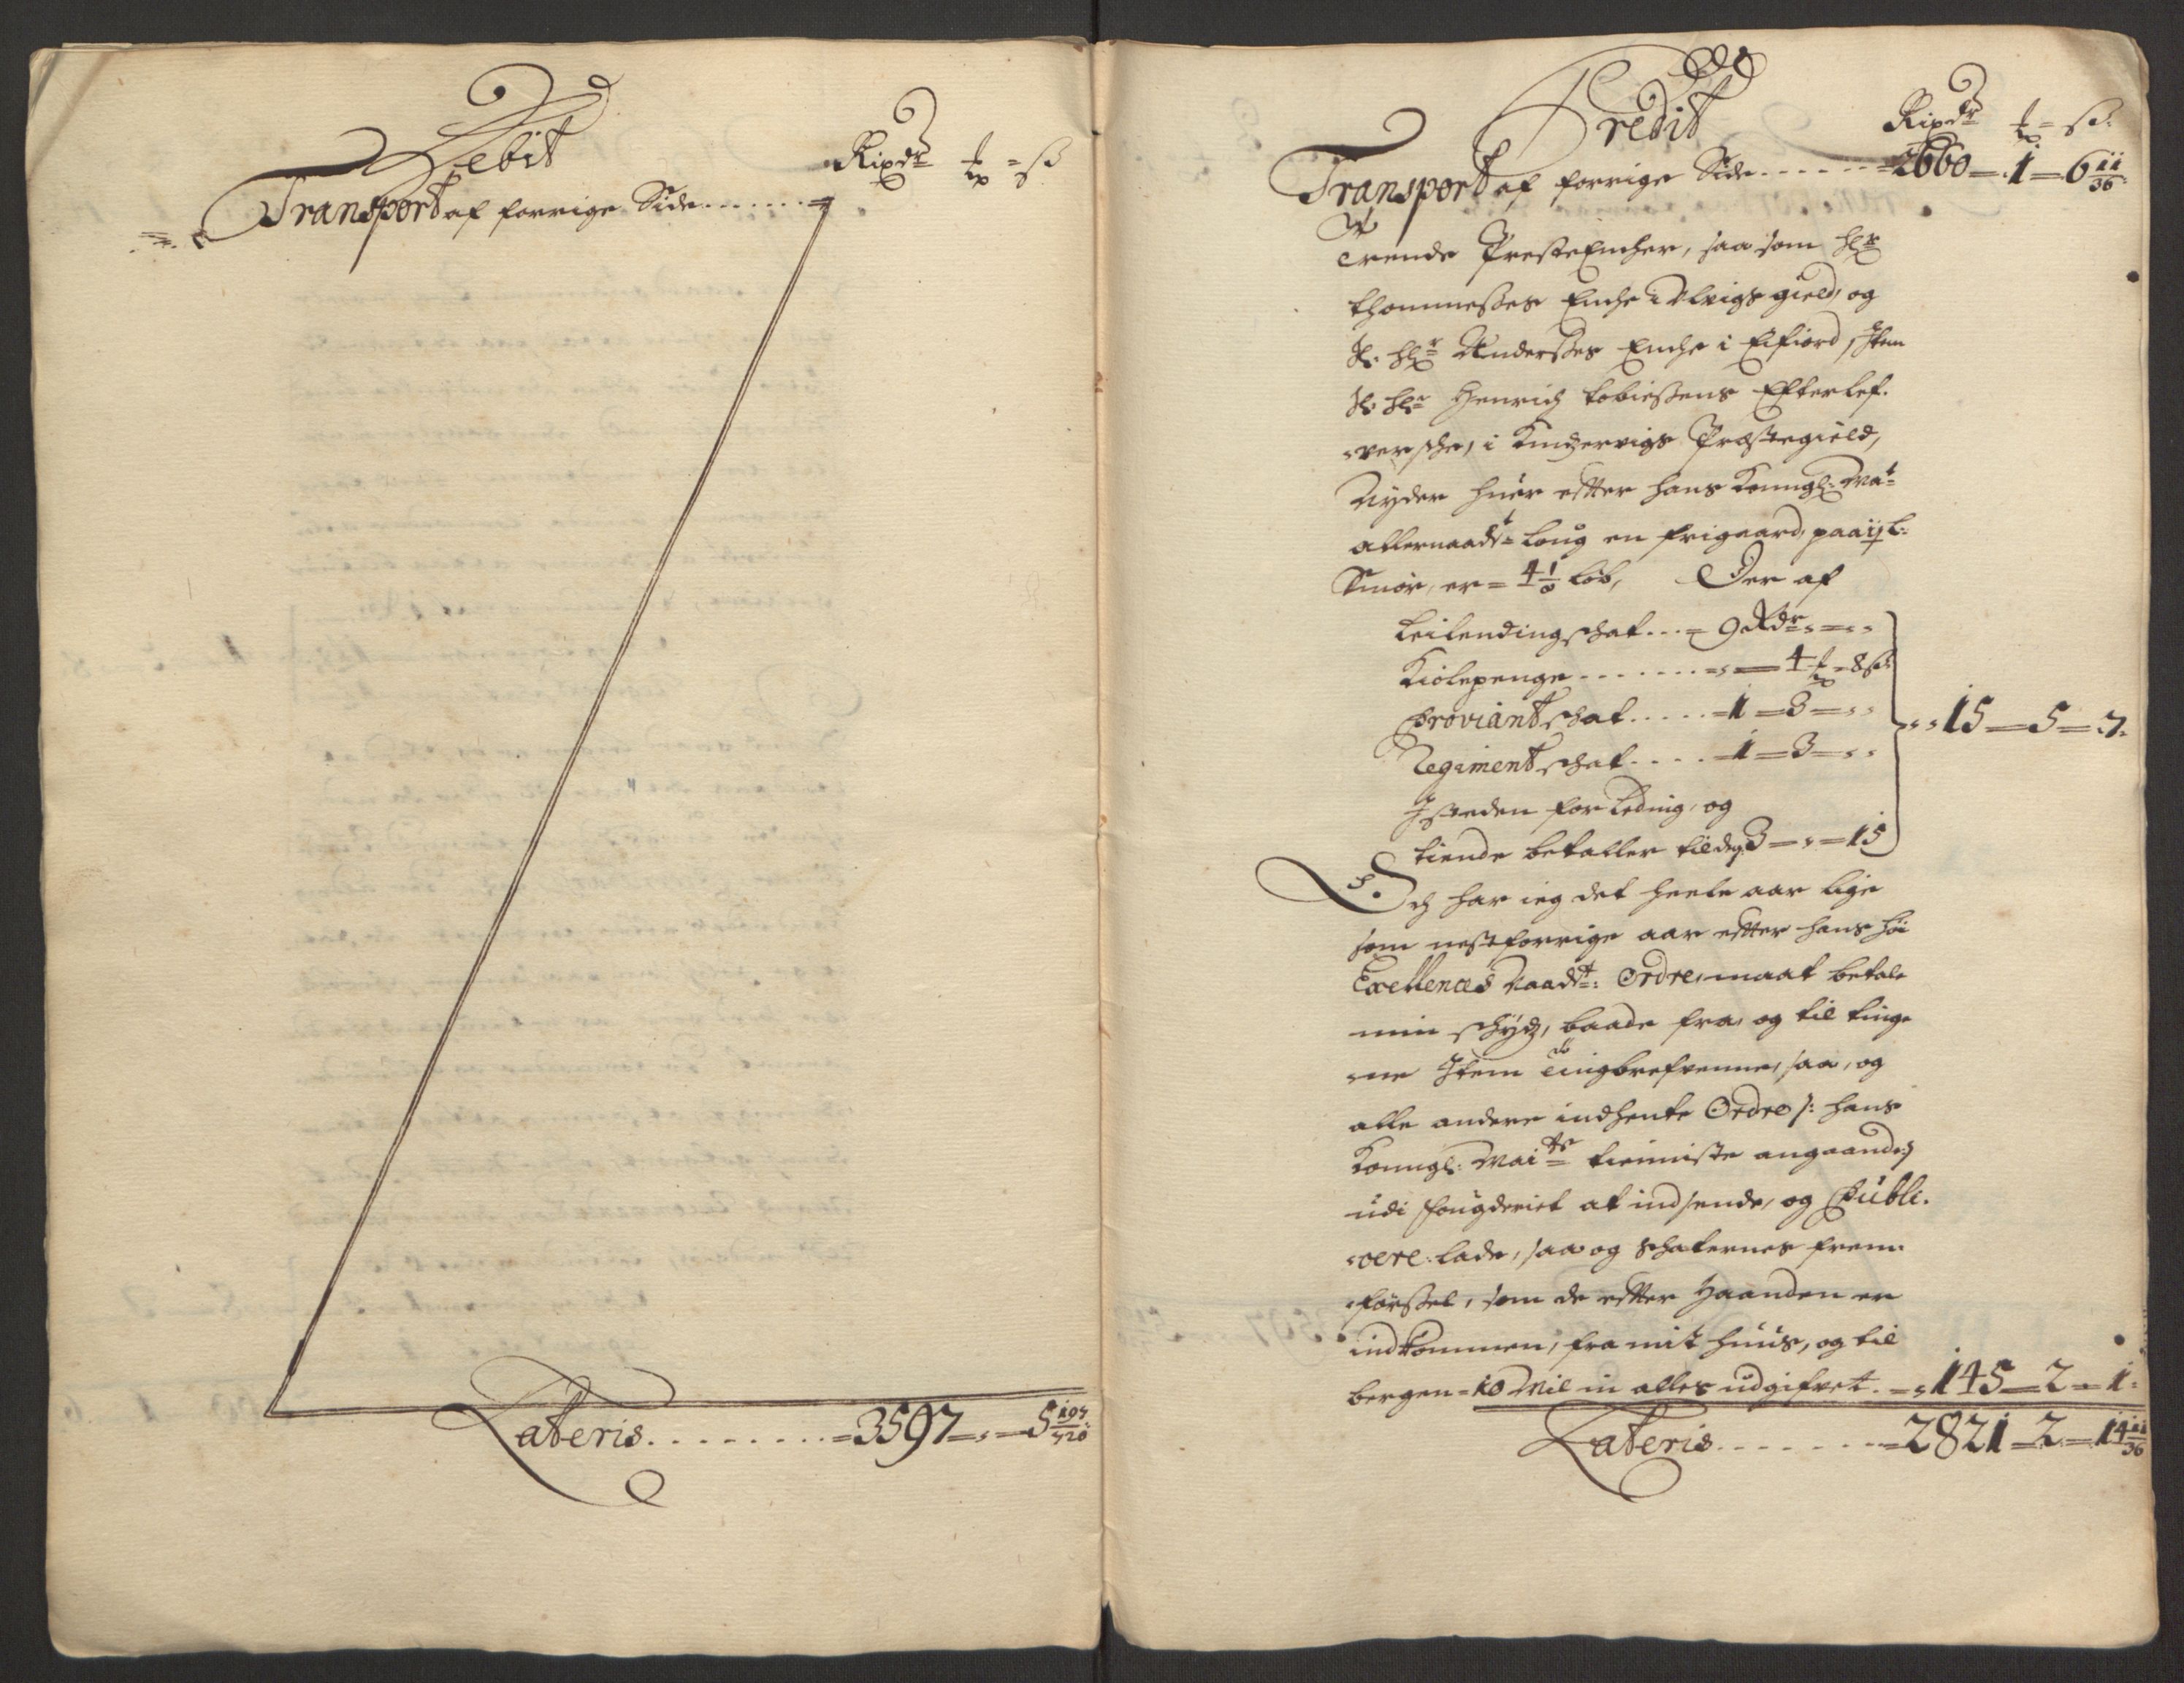 Debit
Rixdr ꝉ = ß
Transport af forrige Side . . . . . . =
Lateris . . . . . . . . . = 3597 = " = 5 197/720
Credit
Rixdr ꝉ = ß:
Transport af forrige Side . . . . . . = 2660 = 1 = 6 11/36
Trende PresteEncher, saa som Hr
Thommeßes Enche i Ulvigs gield, og
Sl: Hr Anderßes Enche i Eifiord, Item
Sl: Hr Henrich Tobießens Efterlef-
versche, i Kindzervigs Præstegield,
Nyder huer efter hans Kongl: Mats
allernaadst Loug en frigaard, paa
Smør, er = 4 1/2 Løb, Der af
Leilendingschat . . . = 9 Rdr = " =
Kiolepenge . . . . . . . = " = 4 ꝉ = 8 ß:
Proviantschat . . . . . = 1 = 3 = "
Regimentschat . . . . = 1 = 3 = " "
Isteden for Leding, og
tiende betaller 3 = " = 15
" 15 = 5 = 7.
Och har ieg det heele aar lige
som nestforrige aar efter hans høi
Exellences Naadst: Ordre, maat betale
min schydz, baade fra, og til tinge
ne Item Tingbrefvenne, saa, og
alle andere indhente Ordre /: hans
Kongl: Maits tieniste angaande:/
udi fougderiet at indsende, og Publi-
cere lade, saa og Schaternes frem-
førßel, som de efter Haanden er
indkommen, fra mit huus, og til
bergen = 10 Mil in alles udgifvet. = " 145 = 2 = 1:
Lateris . . . . . . . = 2821 = 2 = 14 11/36